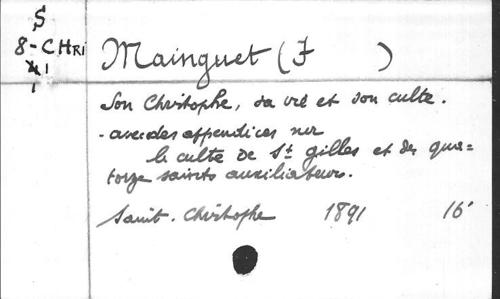 S
8-CHRI
41
1
Mainguet (F )
Son Christophe, sa vie et son culte.
- avec des appendices sur
le culte de St gilles et des qua=
torze saints auxiliateurs.
Saint-Christophe 1891 16°